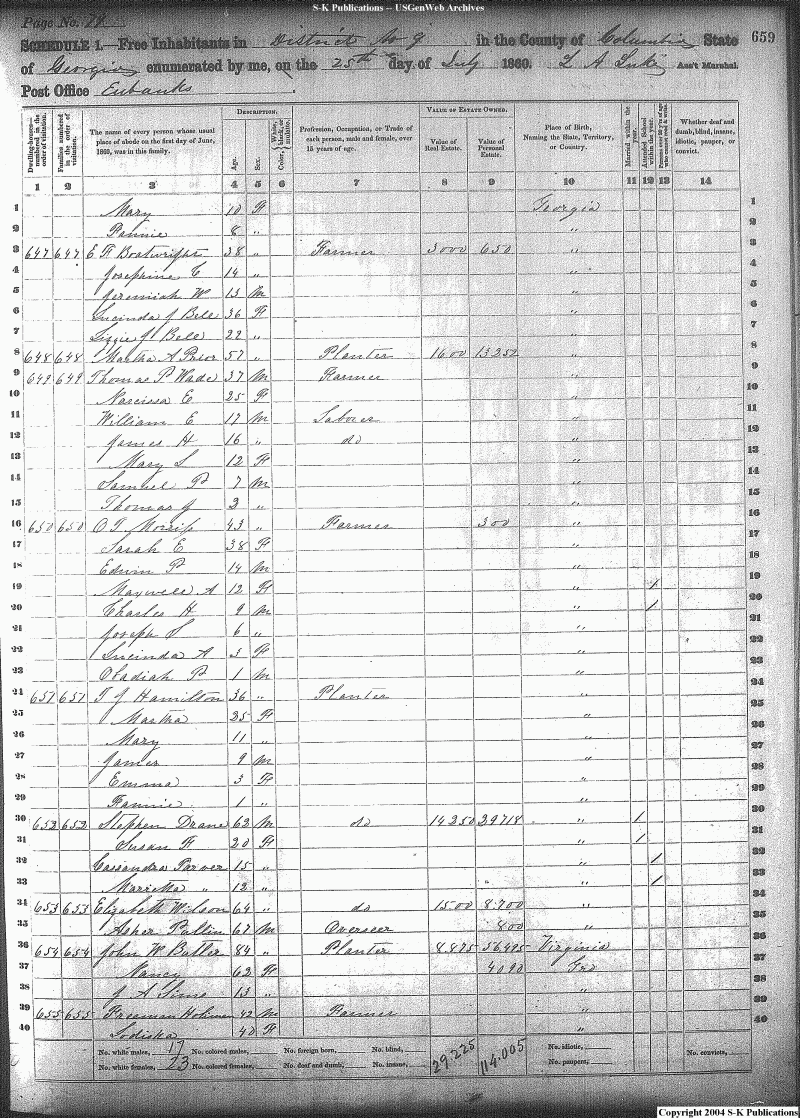 S-K Publications -- USGenWeb Archives
Page No.
659
SCHEDULE 1.—Free Inhabitants in District No 9 in the County of Columbia State
of Georgia enumerated by me, on the 25th day of July 1860. L A Luke Ass't Marshal.
Post Office Eubanks
Dwelling-houses—numbered in the order of visitation.
Families numbered in the order of visitation.
The name of every person whose usual place of abode on the first day of June, 1860, was in this family.
DESCRIPTION.
Age.
Sex.
Color, { White, black, or mulatto.
Profession, Occupation, or Trade of each person, male and female, over 15 years of age.
VALUE OF ESTATE OWNED.
Value of Real Estate.
Value of Personal Estate.
Place of Birth, Naming the State, Territory, or Country.
Married within the year.
Attended School within the year.
Persons over 20 y'rs of age who cannot read & write.
Whether deaf and dumb, blind, insane, idiotic, pauper, or convict.
1 2 3 4 5 6 7 8 9 10 11 12 13 14
1 Mary 10 F Georgia 1
2 Fannie 8 " " 2
3 647 647 E F Boatwright 38 " Farmer 3000 650 " 3
4 Josephine C 14 " " 4
5 Jeremiah W 13 M " 5
6 Lucinda J Bell 36 F " 6
7 Lizzie J Bell 22 " 7
8 648 648 Martha A Prior 57 " Planter 1600 13252 " 8
9 649 649 Thomas P Wade 37 M Farmer " 9
10 Narcissa E 25 F " 10
11 William E 17 M Laborer " 11
12 James H 16 " do " 12
13 Mary S 12 F " 13
14 Samuel P 7 M " 14
15 Thomas J 2 " " 15
16 650 650 O T 43 " Farmer 300 " 16
17 Sarah E 38 F " 17
18 Edwin P 14 M " 18
19 A 12 F " / 19
20 Charles H 9 M " / 20
21 Joseph S 6 " " 21
22 Lucinda A 3 F " 22
23 Obadiah P 1 M " 23
24 651 651 T J Hamilton 36 " Planter " 24
25 Martha 25 F " 25
26 Mary 11 " " 26
27 James 9 M " 27
28 Emma 3 F " 28
29 Fannie 1 " " 29
30 652 652 Stephen Drane 62 M do 14250 29718 " / 30
31 Susan F 20 F " / 31
32 Cassandra 15 " " / 32
33 Marietta " 12 " " / 33
34 653 653 Elizabeth Wilson 64 " do 1500 8700 " 34
35 Asher Pullin 67 M Overseer 800 " 35
36 654 654 John W Butler 84 " Planter 8.875 56495 Virginia 36
37 Nancy 62 F 4090 Geo 37
38 J A Sims 13 " " 38
39 655 655 Freeman 42 M Farmer " 39
40 Lodiska 40 F " 40
No. white males, 17 No. colored males, No. foreign born, No. blind, 29.225 114.005 No. idiotic, No. convicts,
No. white females, 23 No. colored females, No. deaf and dumb, No. insane, No. paupers,
Copyright 2004 S-K Publications